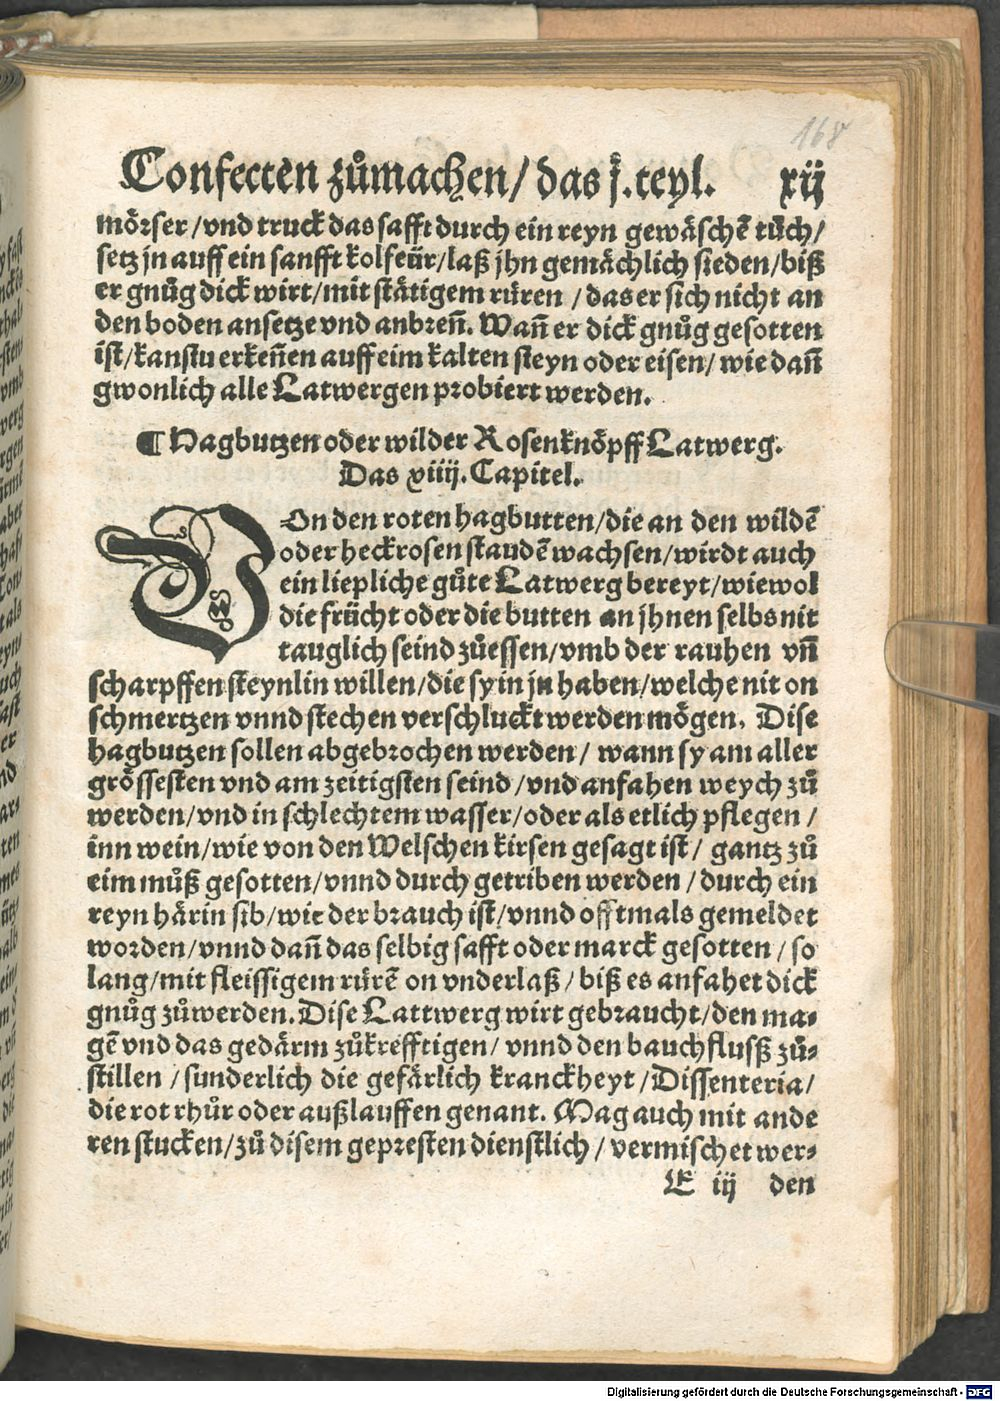 168
Confecten zůmachen/ das j. teyl. xij
mörser/vnd truck das safft durch ein reyn gewäschē tůch/
setz jn auff ein sanfft kolfeür/laß jhn gemächlich sieden/biß
er gnůg dick wirt/mit stätigem rüren / das er sich nicht an
den boden ansetze vnd anbreñ. Wañ er dick gnůg gesotten
ist/kanstu erkeñen auff eim kalten steyn oder eisen/ wie dañ
gwonlich alle Latwergen probiert werden.
¶ Hagbutzen oder wilder Rosenknöpff Latwerg.
Das xiiij. Capitel.
VOn den roten hagbutten/die an den wildē
oder heckrosen staudē wachsen/wirdt auch
ein liepliche gůte Latwerg bereyt/wiewol
die frücht oder die butten an jhnen selbs nit
tauglich seind zůessen/vmb der rauhen vñ
scharpffen steynlin willen/die sy in jn haben/welche nit on
schmertzen vnnd stechen verschluckt werden mögen. Dise
hagbutzen sollen abgebrochen werden/ wann sy am aller
grössesten vnd am zeitigsten seind /vnd anfahen weych zů
werden/vnd in schlechtem wasser/oder als etlich pflegen /
inn wein/wie von den Welschen kirsen gesagt ist/ gantz zů
eim můß gesotten/vnnd durch getriben werden / durch ein
reyn härin sib/wie der brauch ist/vnnd offtmals gemeldet
worden/vnnd dañ das selbig safft oder marck gesotten / so
lang/mit fleissigem rürē on vnderlaß / biß es anfahet dick
gnůg zůwerden. Dise Lattwerg wirt gebraucht/den ma⸗
gē vnd das gedärm zůkrefftigen/ vnnd den bauchfluß zů⸗
stillen / sunderlich die gefärlich kranckheyt / Dissenteria/
die rot rhůr oder außlauffen genant. Mag auch mit ande
ren stucken/zů disem gepresten dienstlich / vermischet wer⸗
E iij den
Digitalisierung gefördert durch die Deutsche Forschungsgemeinschaft - DFG